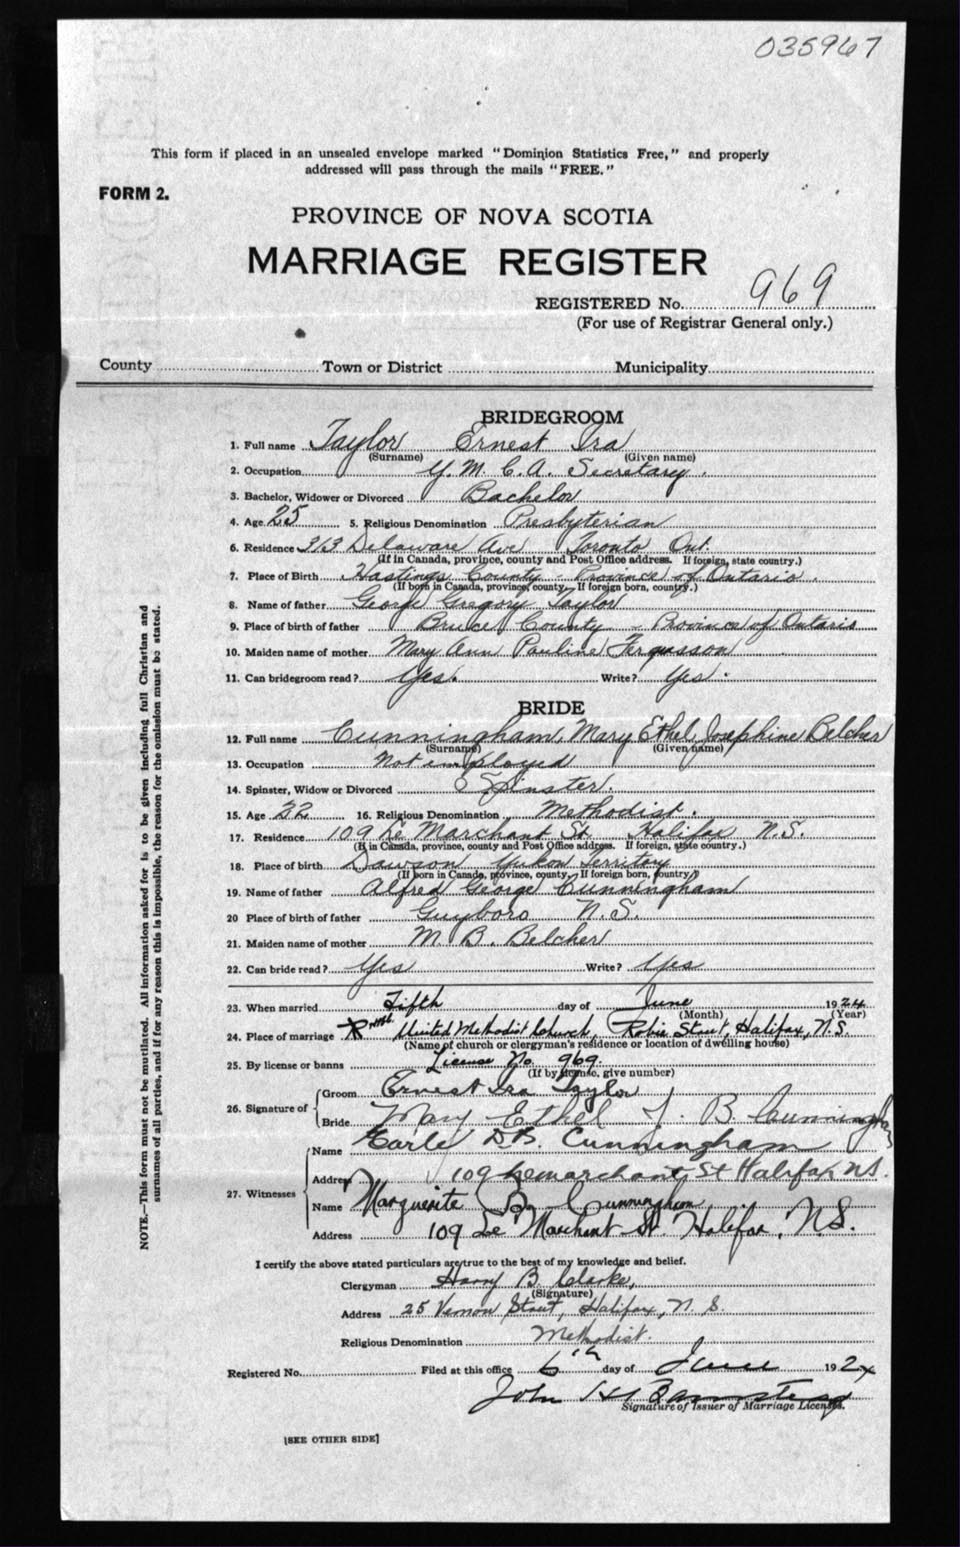 035967
This form if placed in an unsealed envelope marked "Dominion Statistics Free," and properly
addressed will pass through the mails "FREE."
FORM 2.
PROVINCE OF NOVA SCOTIA
MARRIAGE REGISTER
REGISTERED No. 969
(For use of Registrar General only.)
County Town or District Municipality
BRIDEGROOM
1. Full name Taylor Ernest Ira
(Surname) (Given name)
2. Occupation Y. M. C. A. Secretary.
3. Bachelor, Widower or Divorced Bachelor
4. Age 25 5. Religious Denomination Presbyterian
6. Residence 313 Delaware Ave Toronto Ont.
(If in Canada, province, county and Post Office address. If foreign, state country.)
7. Place of Birth Hastings County - Province of Ontario.
(If born in Canada, province, county. If foreign born, country.)
8. Name of father George Gregory Taylor
9. Place of birth of father Bruce County - Province of Ontario
10. Maiden name of mother Mary Ann Pauline Fergusson
11. Can bridegroom read? Yes. Write? Yes.
BRIDE
12. Full name Cunningham, Mary Ethel Josephine Belcher
(Surname) (Given name)
13. Occupation Not employed
14. Spinster, Widow or Divorced Spinster.
15. Age 22 16. Religious Denomination Methodist.
17. Residence 109 Le Marchant St. Halifax N.S.
(If in Canada, province, county and Post Office address. If foreign, state country.)
18. Place of birth Dawson Yukon Territory
(If born in Canada, province, county. If foreign born, country.)
19. Name of father Alfred George Cunningham
20 Place of birth of father Guyboro N.S.
21. Maiden name of mother M. B. Belcher
22. Can bride read? Yes Write? Yes
23. When married Fifth day of June 1924
(Month) (Year)
24. Place of marriage United Methodist Church, Robie Street, Halifax, N.S.
(Name of church or clergyman's residence or location of dwelling house)
25. By license or banns License No. 969.
(If by license, give number)
26. Signature of Groom Ernest Ira Taylor
Bride Mary Ethel J. B. Cunningham
27. Witnesses Name Earle D.B. Cunningham
Address 109 Lemarchant St Halifax NS.
Name Marguerite B. Cunningham
Address 109 Le Marchant St. Halifax, N.S.
I certify the above stated particulars are true to the best of my knowledge and belief.
Clergyman Harry B. Clarke,
(Signature)
Address 25 Vernon Street, Halifax, N. S.
Religious Denomination Methodist.
Registered No. Filed at this office 6th day of June 1924
John H
Signature of Issuer of Marriage Licenses.
[SEE OTHER SIDE]
NOTE.—This form must not be mutilated. All information asked for is to be given including full Christian and
surnames of all parties, and if for any reason this is impossible, the reason for the omission must be stated.